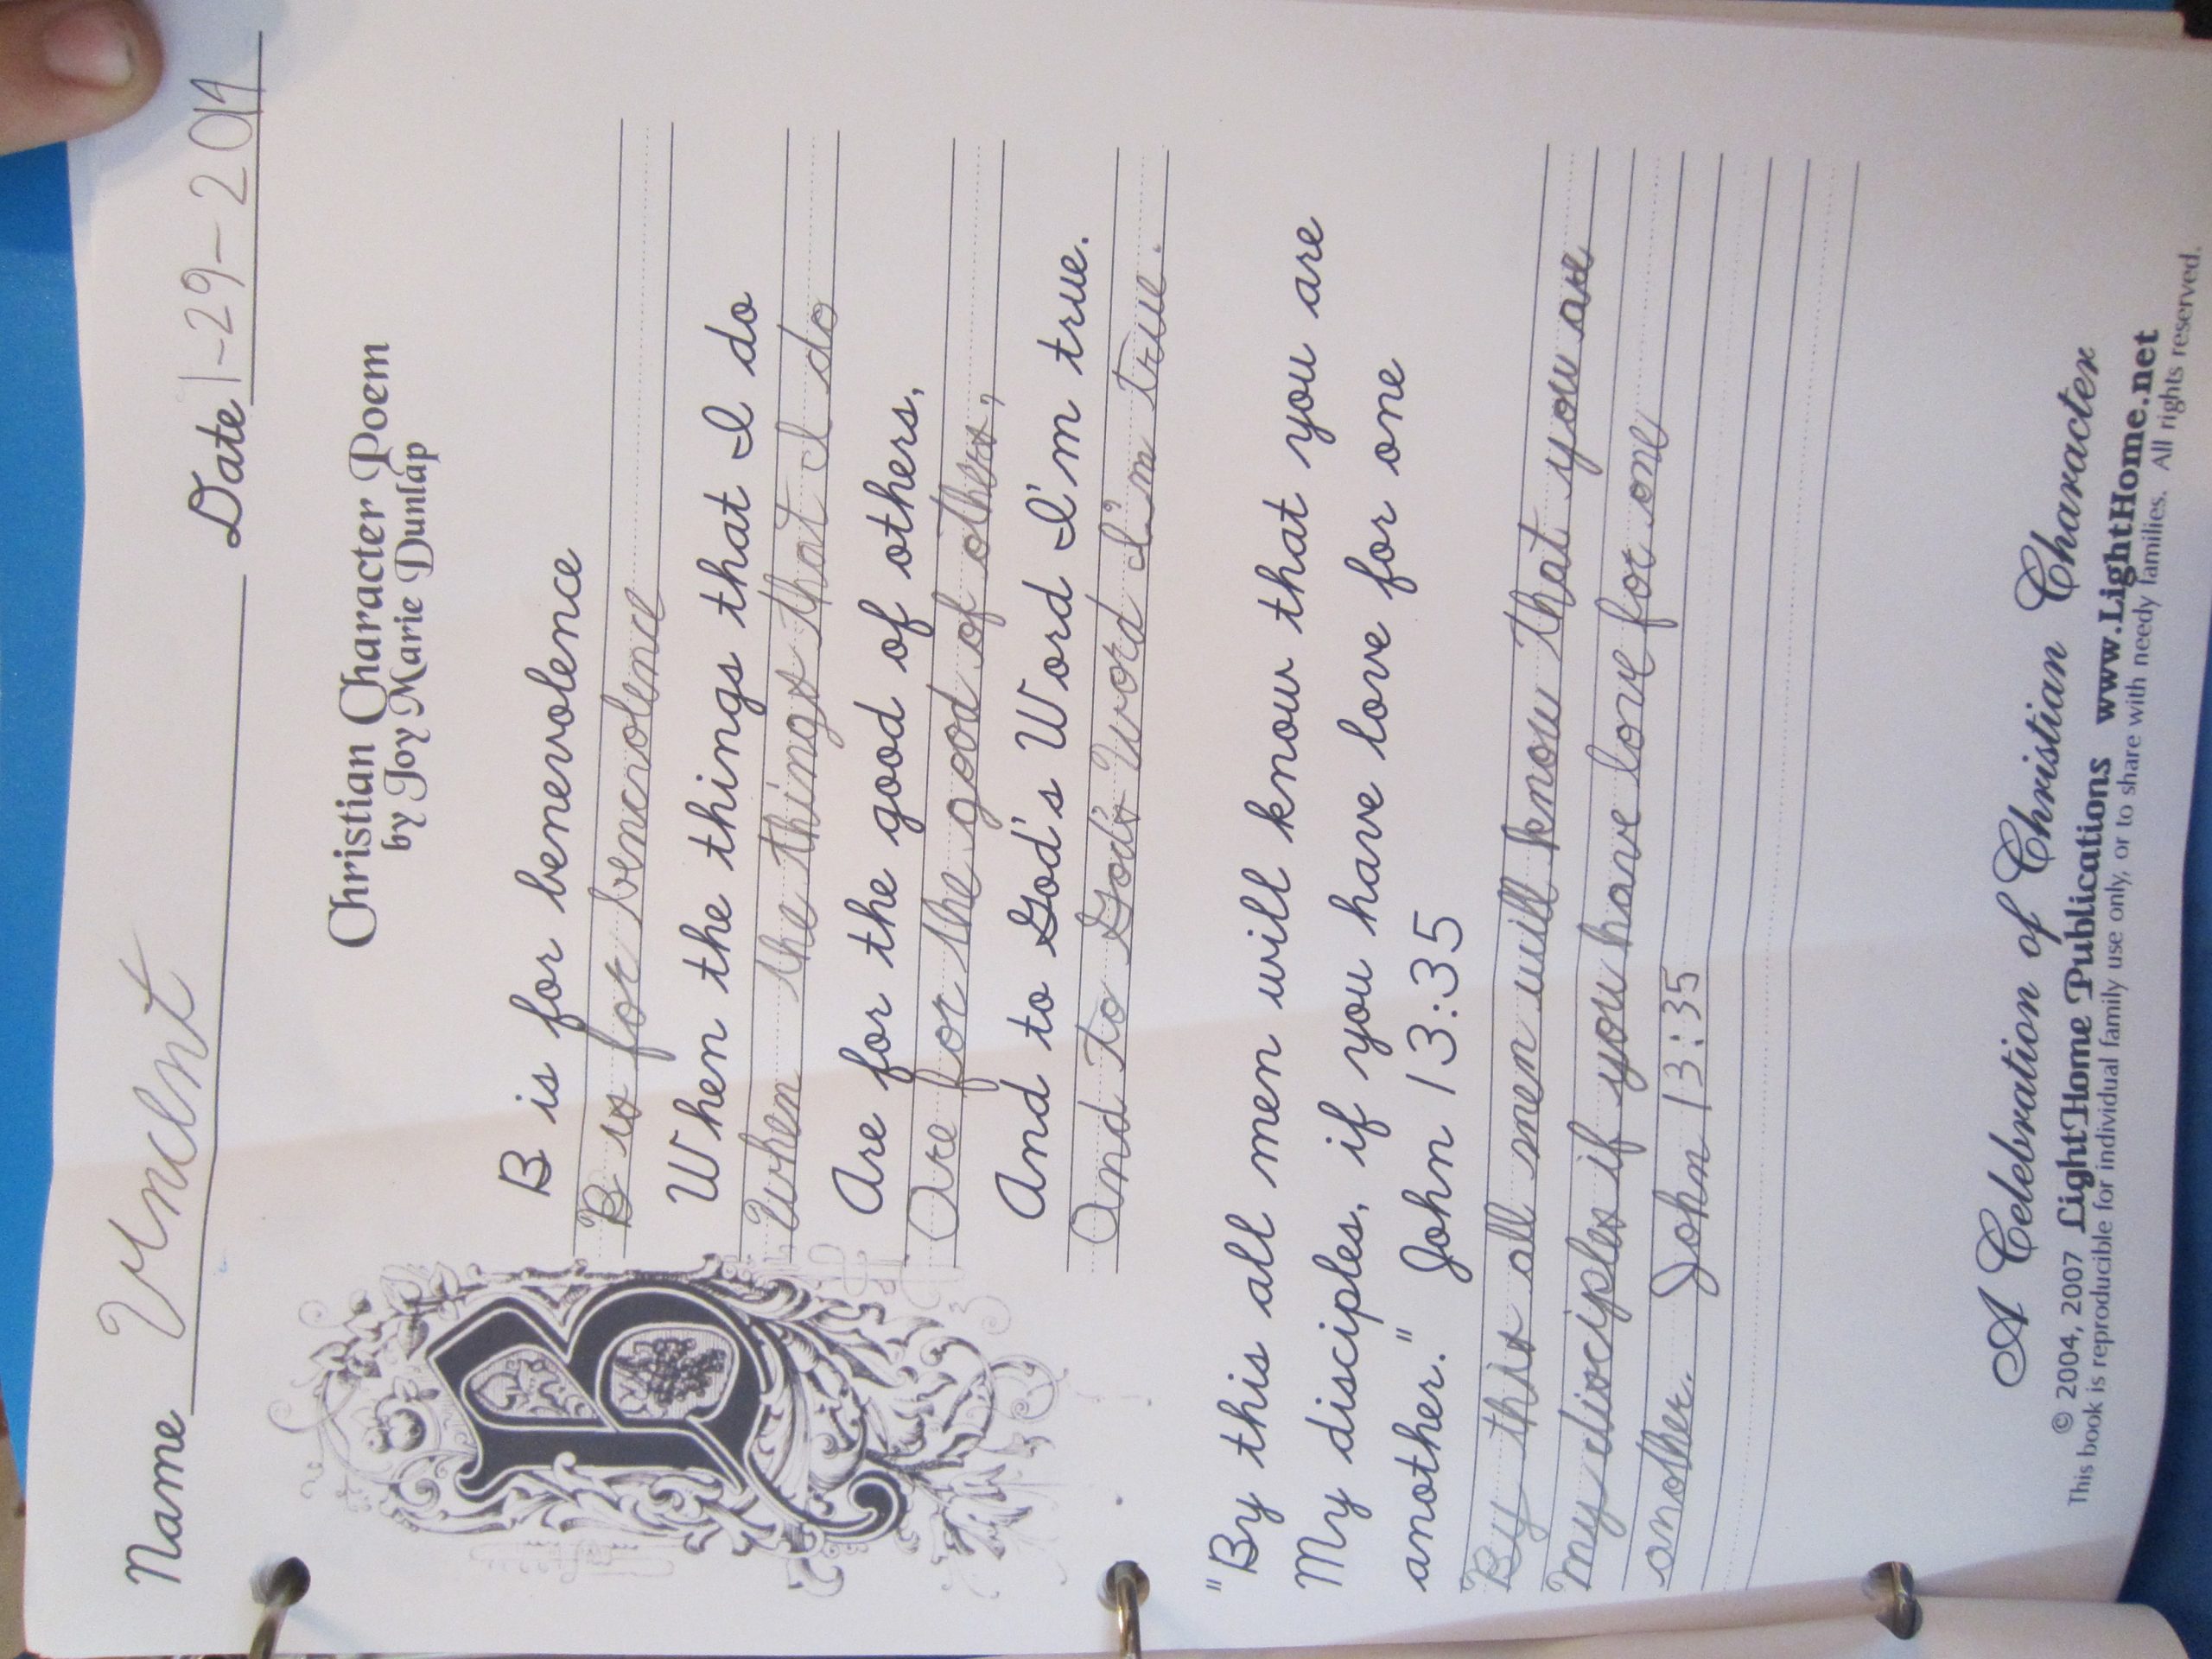 Name Vincent Date 1-29-2014
Christian Character Poem
by Joy Marie Dunlap
B
B is for benevolence
B is for benevolence
When the things that I do
When the things that I do
Are for the good of others,
Are for the good of others,
And to God's Word I'm true.
And to God's Word I'm true.
"By this all men will know that you are
My disciples, if you have love for one
another." John 13:35
By this all men will know that you are
my disciples if you have love for one
another. John 13:35
A Celebration of Christian Character
© 2004, 2007 LightHome Publications www.LightHome.net
This book is reproducible for individual family use only, or to share with needy families. All rights reserved.